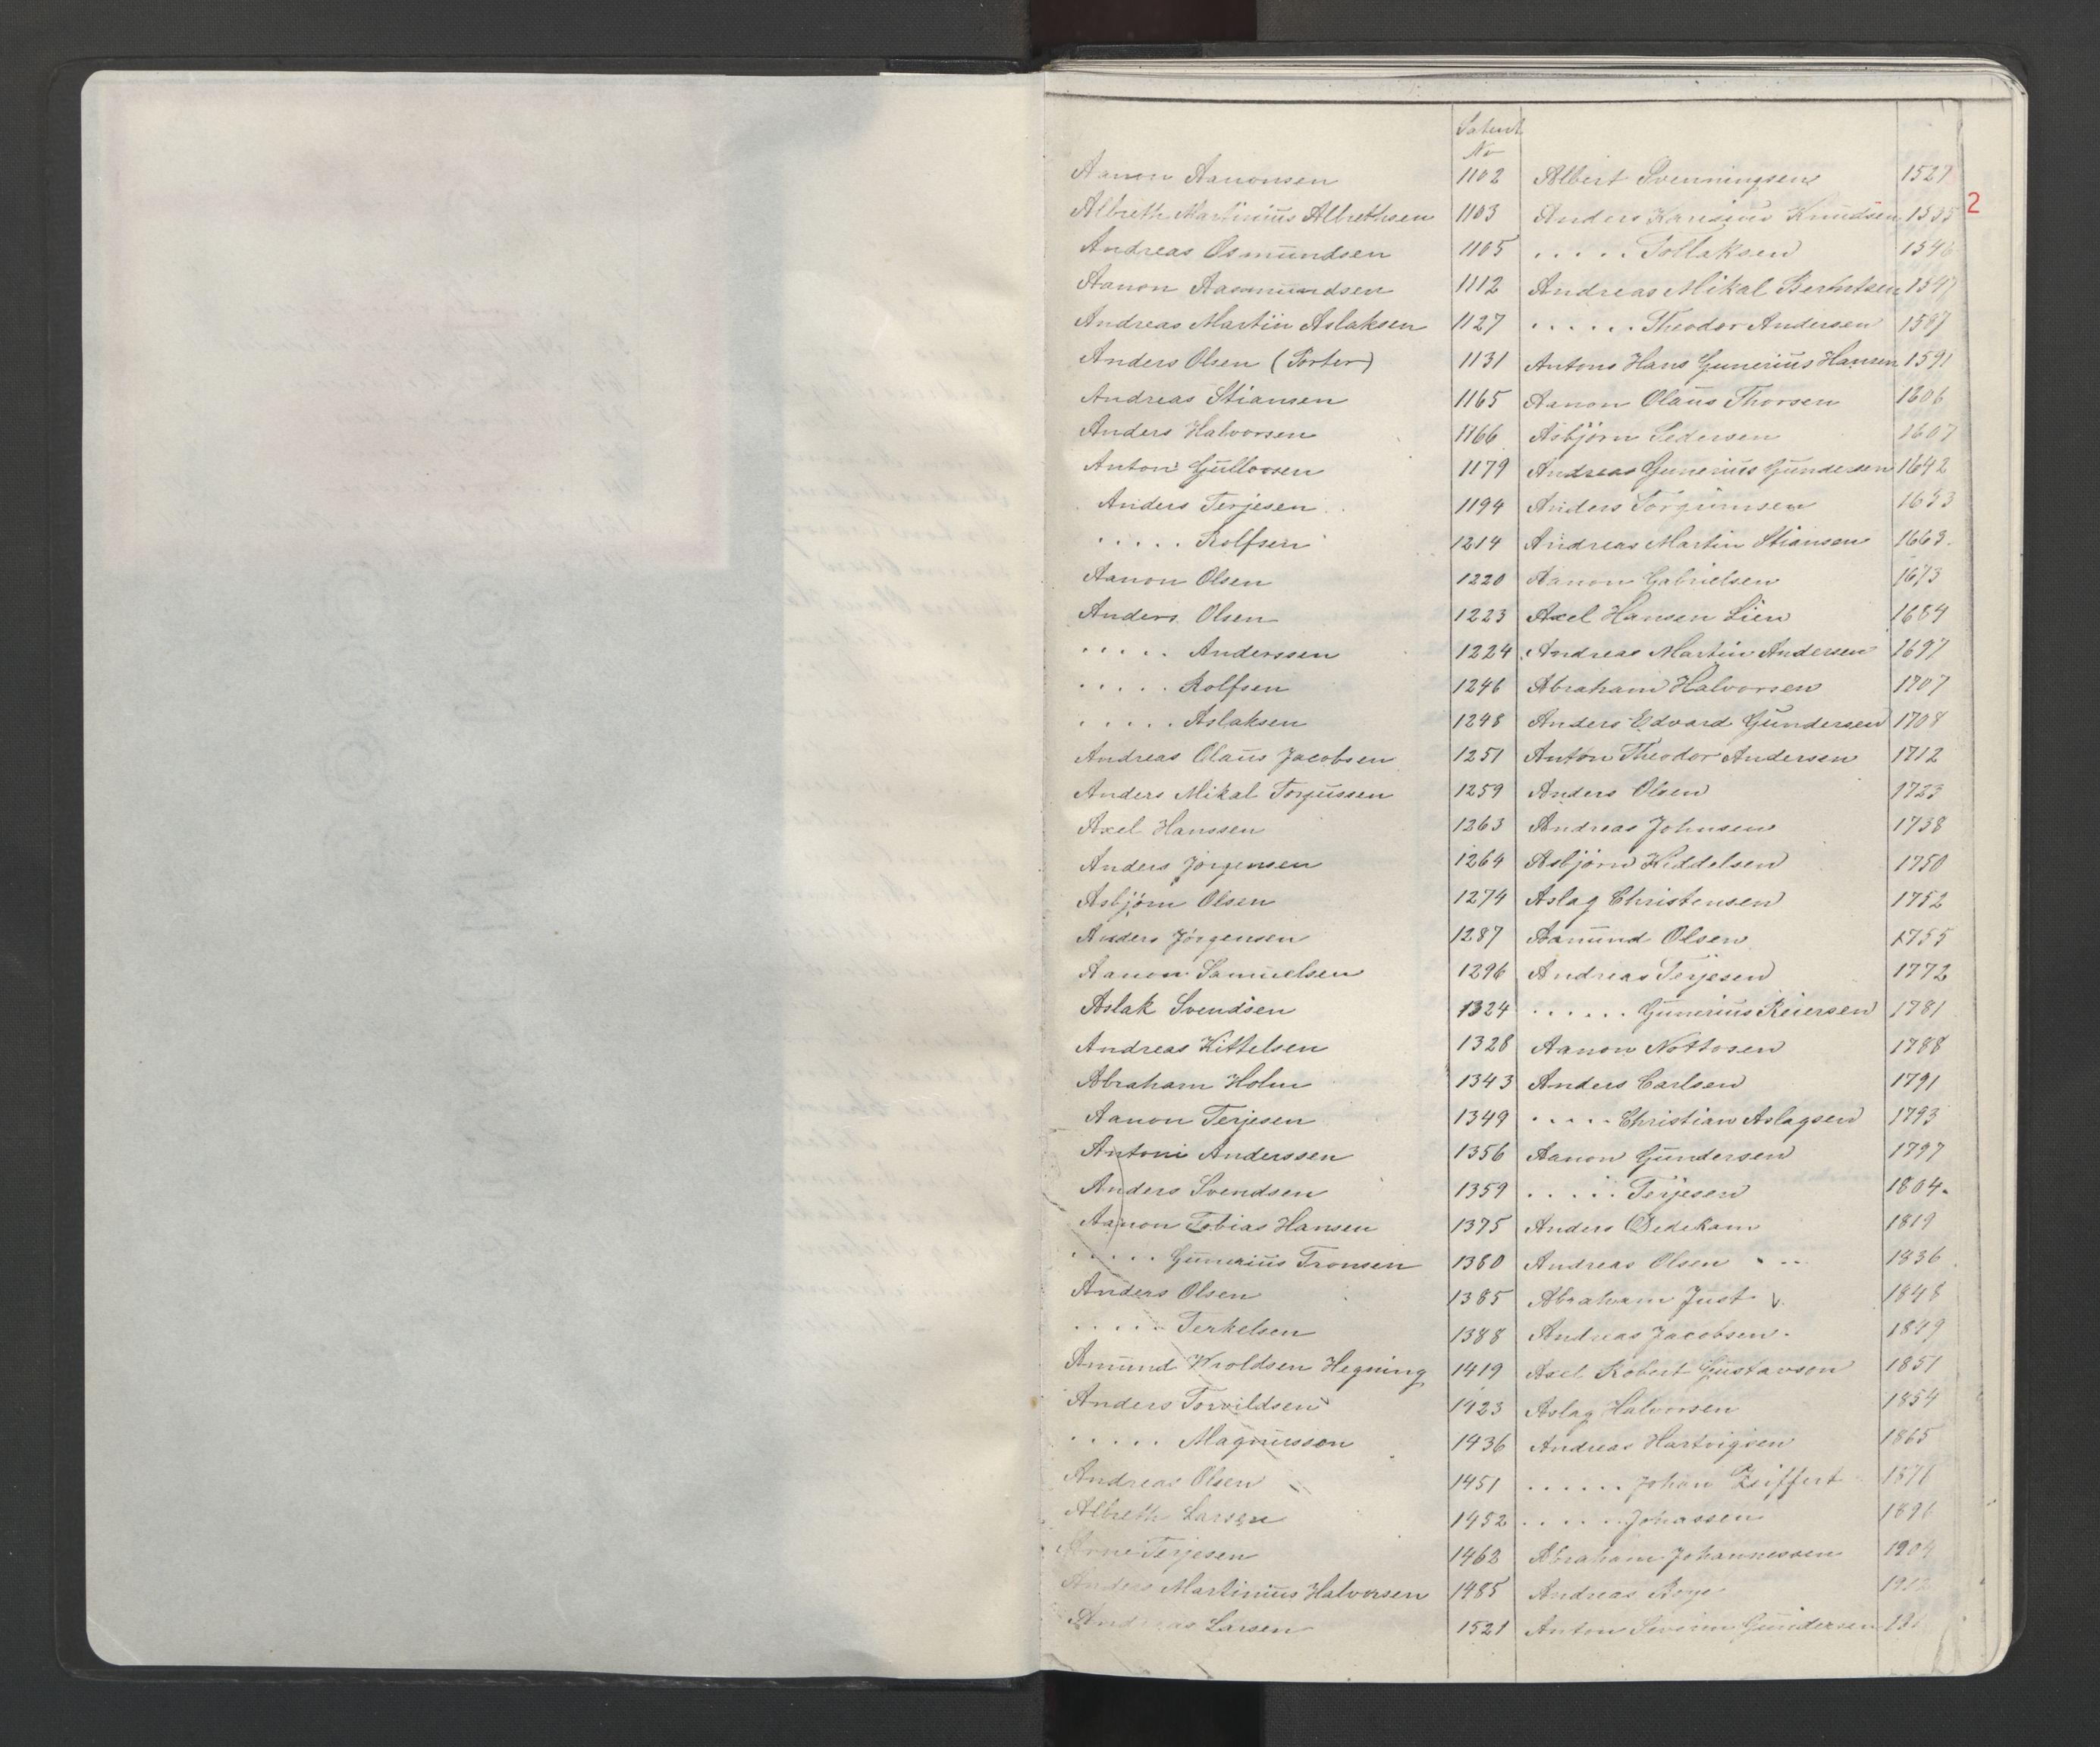 Patent
No
2
Aanon Aanonsen 1102
Albreth Martinius Albrethsen 1103
Andreas Osmundsen 1105
Aanon Aasmundsen 1112
Andreas Martin Aslaksen 1127
Anders Olsen (Porter) 1131
Andreas Stiansen 1165
Anders Halvorsen 1166
Anton Gullovsen 1179
Anders Terjesen 1194
..... Rolfsen 1214
Aanon Olsen 1220
Anders Olsen 1223
..... Anderssen 1224
..... Rolfsen 1246
..... Aslaksen 1248
Andreas Olaus Jacobsen 1251
Anders Mikal Torjussen 1259
Axel Hanssen 1263
Anders Jörgensen 1264
Asbjörn Olsen 1274
Anders Jörgensen 1287
Aanon Samuelsen 1296
Aslak Svendsen 1324
Andreas Kittelsen 1328
Abraham Holm 1343
Aanon Terjesen 1349
Antoni Anderssen 1356
Anders Svendsen 1359
Aanon Tobias Hansen 1375
..... Gunerius Tronsen 1380
Anders Olsen 1385
..... Terkelsen 1388
Amund Wroldsen Hegning 1419
Anders Torvildsen 1423
..... Magnussen 1436
Andreas Olsen 1451
Albreth Larsen 1452
Arne Terjesen 1462
Anders Martinius Halvorsen 1485
Andreas Larsen 1521
Albert Svenningsen 1527
Anders Knudsen 1535
..... Tollaksen 1546
Andreas Mikal Berntsen 1547
...... Theodor Andersen 1587
Antons Hans Gunerius Hansen 1591
Aanon Olaus Thorsen 1606
Asbjörn Pedersen 1607
Andreas Gunerius Gundersen 1642
Anders Torjumsen 1653
Andreas Martin Stiansen 1663.
Aanon Gabrielsen 1673
Axel Hansen Lien 1684
Andreas Martin Andersen 1697
Abraham Halvorsen 1707
Anders Edvard Gundersen 1708
Anton Theodor Andersen 1712
Anders Olsen 1723
Andreas Johnsen 1738
Asbjörn Kiddelsen 1750
Aslag Christensen 1752
Aamund Olsen 1755
Andreas Terjesen 1772
...... Gunerius Reiersen 1781
Aanon Nottosen 1788
Anders Carlsen 1791
..... Christian Aslagsen 1793
Aanon Gundersen 1797
..... Terjesen 1804.
Anders Dedekam 1819
Andreas Olsen 1836
Abraham Just 1848
Andreas Jacobsen. 1849
Axel Robert Gustavson 1851
Aslag Halvorsen 1854
Andreas Hartvigsen 1865
...... Johan 1871
..... Johassen 1896
Abraham Johannessen 1904
Andreas
Anton Severin Gundersen